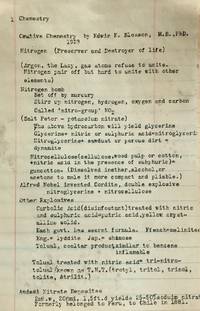 Chemistry
Creative Chemistry by Edwin E. Slosson, M.S. PhD.
1919
Nitrogen (Preserver and Destroyer of life)
(Argon, the Lazy, gas atoms refuse to unite.
Nitrogen pair off but hard to unite with other
elements)
Nitrogen bomb
Set off by mercury
Stirs up nitrogen, hydrogen, oxygen and carbon
Called 'nitro-group' NO2
(Salt Peter - potassium nitrate)
The above hydrocarbon will yield glycerine
Glycerine+ nitric or sulphuric acid=nitroglycerine
Nitroglycerine+ sawdust or porous dirt =
dynamite
Nitrocellulose(cellulose,wood pulp or cotton,
+nitric acid in the presence of sulphuric)=
guncotton= (Dissolved inether,alcohol,or
acetone to make it more compact and pliable.)
Alfred Nobel invented Cordite, double explosive
nitroglycerine + nitrocellulose
Other Explosives
Carbolic Acid(disinfectant)treated with nitric
and sulphuric acid=picric acid,yellow cryst-
alline solid.
Each govt. has secret formula. French=melinite
Eng.= lyddite Jap.= shimose
Toluol, coaltar product,similar to benzene
inflamable
Toluol treated with nitric acid= tri-nitro-
toluol(known as T.N.T.(trotyl, tritol, trinol,
tolite, &trilit.)
Ancient Nitrate Deposites
2mi.w, 220mi. l,5ft.d yields 25-50% sodium nitrate
Formerly belonged to Peru, to Chile in 1881.